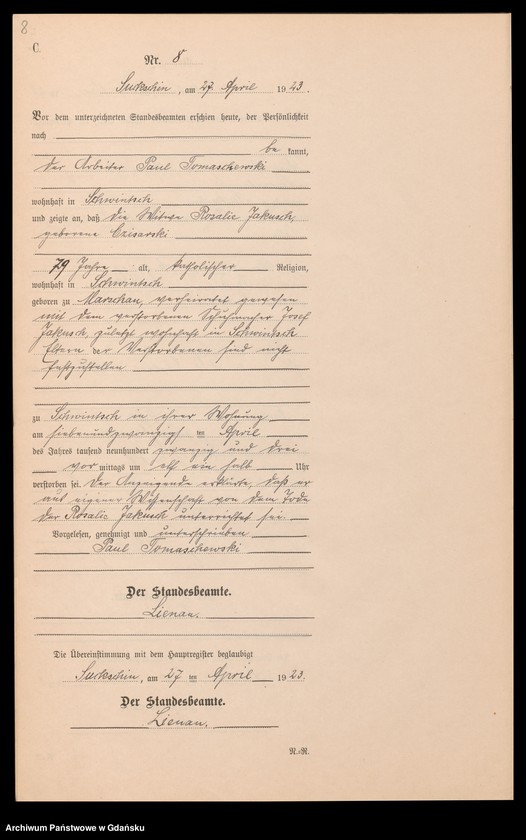 8
C.
Nr. 8
Suckschin, am 27. April 1923.
Vor dem unterzeichneten Standesbeamten erschien heute, der Persönlichkeit
nach
be kannt,
der Arbeiter Paul Tomaschewski
wohnhaft in Schwintsch
und zeigte an, daß die Witwe Rosalie Jakusch,
geborene Czisarski
79 Jahre alt, katholischer Religion,
wohnhaft in Schwintsch
geboren zu Marschau, verheiratet gewesen
mit dem verstorbenen Schuhmacher Josef
Jakusch, zuletzt wohnhaft in Schwintsch
Eltern der Verstorbenen sind nicht
festzustellen
zu Schwintsch in ihrer Wohnung
am siebenundzwanzigsten April
des Jahres tausend neunhundert zwanzig und drei
vor mittags um elf ein halb Uhr
verstorben sei. Der Anzeigende erklärte, daß er
aus eigener Wissenschaft von dem Tode
der Rosalie Jakusch unterrichtet sei.
Vorgelesen, genehmigt und unterschrieben
Paul Tomaschewski
Der Standesbeamte.
Lienau.
Die Übereinstimmung mit dem Hauptregister beglaubigt
Suckschin, am 27 ten April 1923.
Der Standesbeamte.
Lienau.
N.-R.
Archiwum Państwowe w Gdańsku